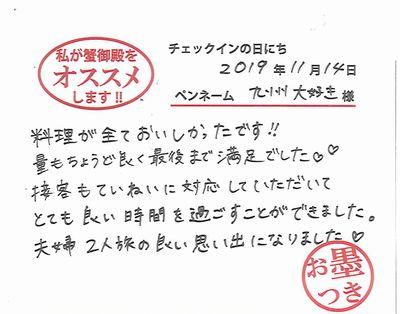 私が蟹御殿を
オススメ
します!!
チェックインの日にち
2019年11月14日
ペンネーム 九州大好き 様
料理が全ておいしかったです!!
量もちょうど良く最後まで満足でした♡♡
接客もていねいに対応していただいて
とても良い時間を過ごすことができました。
夫婦2人旅の良い思い出になりました♡
お墨
つき